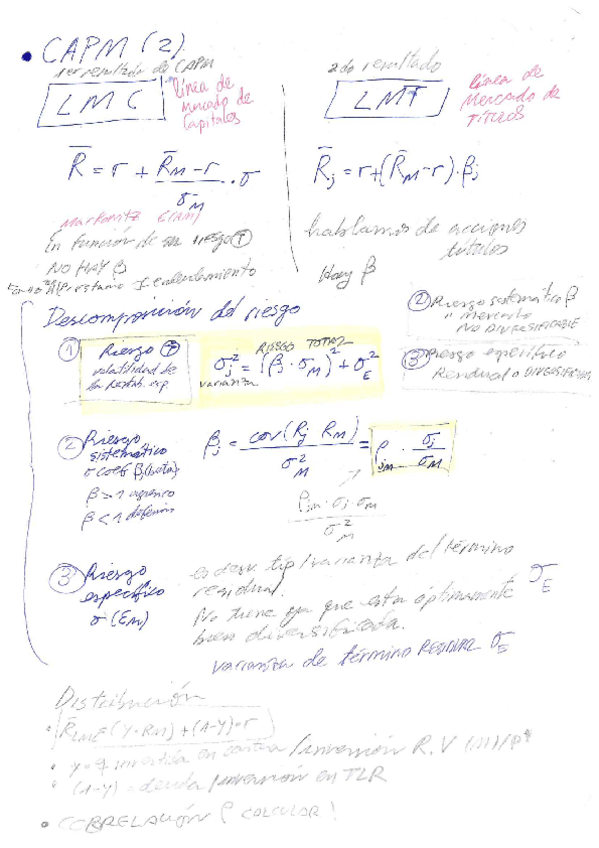 • CAPM (2)
1er resultado de CAPM
LMC
línea de
mercado de
Capitales
R̄ = r + (R̄M - r)/σM · σ
Markowitz E(AM)
En función de su riesgo (T)
NO HAY β
préstamo y endeudamiento
2do resultado
LMT
línea de
Mercado de
TÍTULOS
R̄j = r + (R̄M - r) · βj
hablamos de acciones
títulos
Hay β
Descomposición del riesgo
① Riesgo (T)
volatilidad de
la rentab. esp
RIESGO TOTAL
σj² = (βj · σM)² + σE²
varianza
② Riesgo sistemático β
o mercado
NO DIVERSIFICABLE
③ Riesgo específico
Residual o DIVERSIFICABLE
② Riesgo
sistemático
σ coef βj (beta)
β > 1 agresivo
β < 1 defensivo
βj = cov(Rj RM)/σM² = ρjm · σj/σM
ρjm · σj σm/σM²
③ Riesgo
específico
σ(Em)
es desv. típ/varianza del término
residual. σE
No tiene que estar óptimamente
bien diversificada.
varianza de término RESIDUAL σE
Distribución
• R̄LMC = (Y · RM) + (1-Y) · r
• Y = invertida en cartera/inversión R.V (M)/P*
• (1-Y) = deuda/inversión en TLR
• CORRELACIÓN ρ CALCULAR!